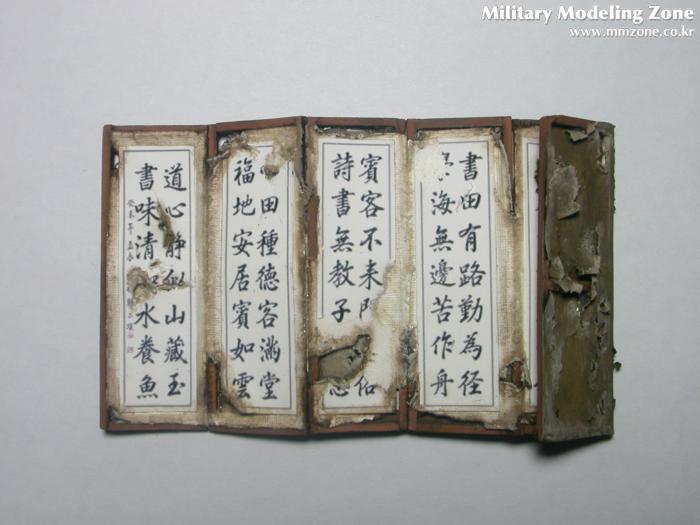 Military Modeling Zone
www.mmzone.co.kr
書有路勤為径
海無邊苦作舟
賓客不来俗
詩書無教子
田種德客滿堂
福地安居賓如雲
道心静似山藏玉
書味清水養魚
癸未年孟春